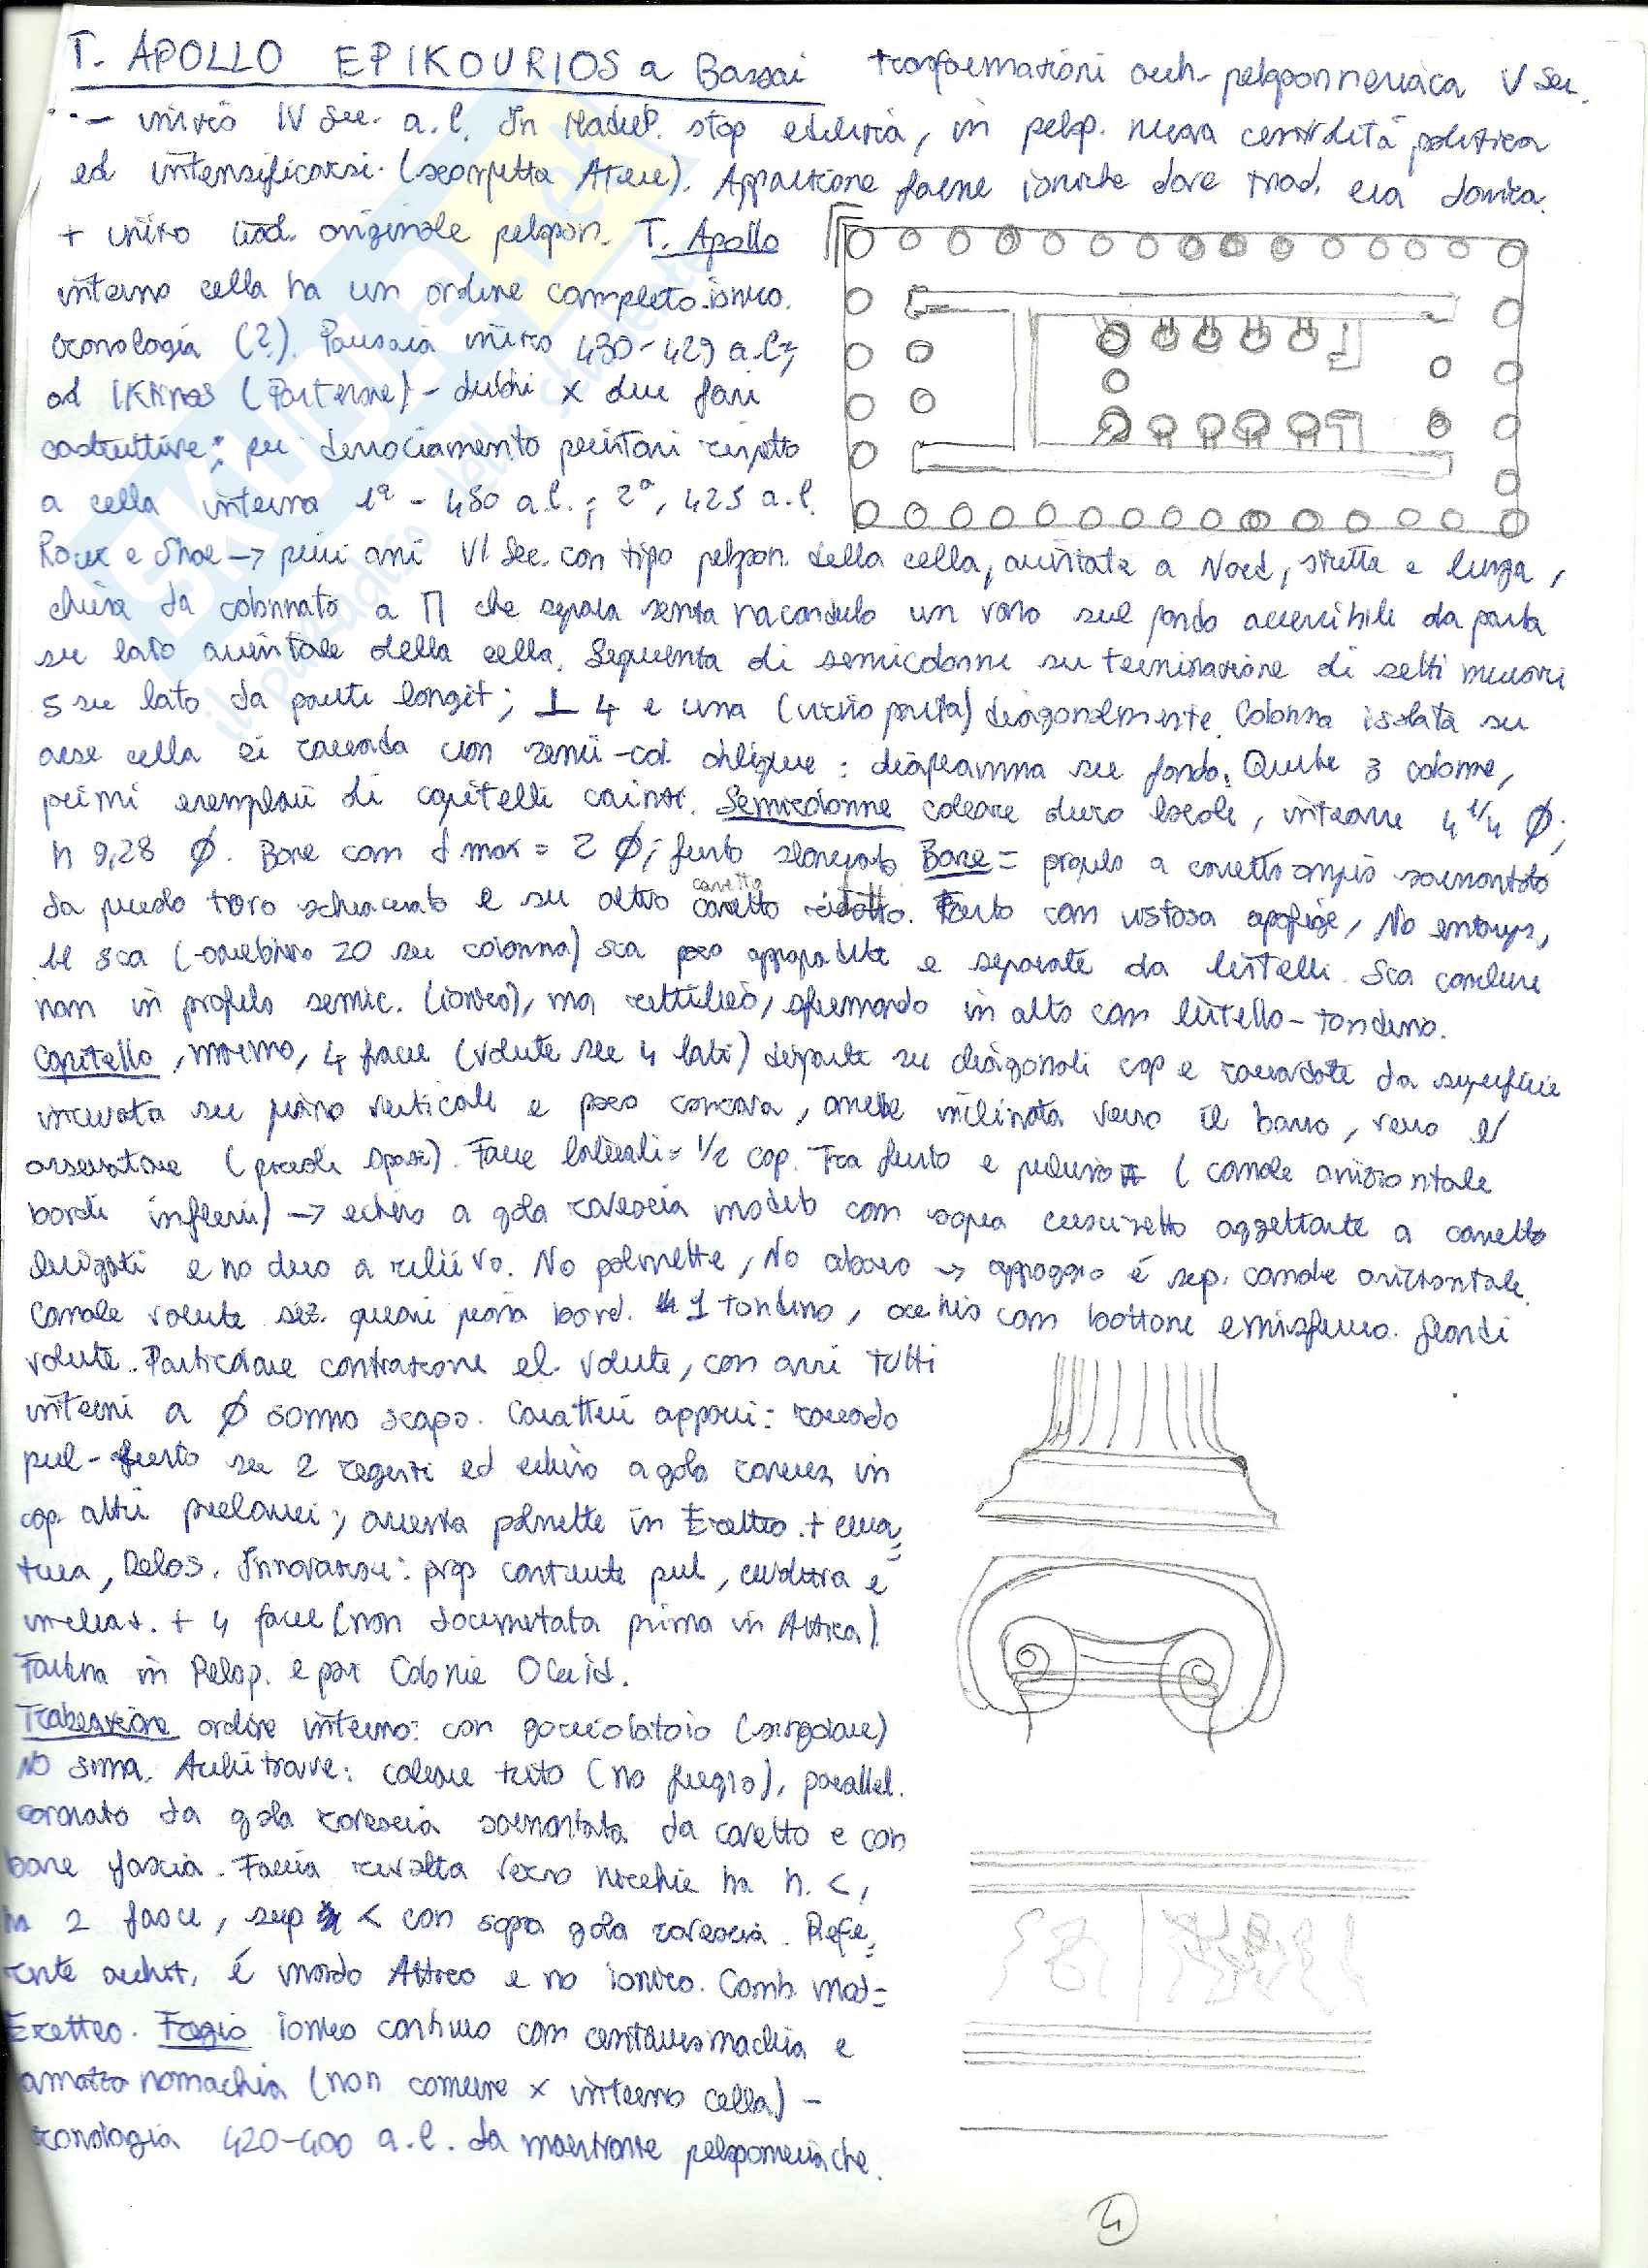 T. APOLLO EPIKOURIOS a Bassai trasformazioni arch. peloponnesiaca V sec.
- inizio IV sec. a.C. In Madrep. stop edilizia, in pelop. nuova centralità politica
ed intensificarsi. (sconfitta Atene). Apparizione forme ioniche dove trad. era dorica.
+ inizio trad. originale pelopon. T. Apollo
interno cella ha un ordine completo ionico.
cronologia (?). Pausania inizio 430-429 a.C.,
ad Iktinos (Partenone) - dubbi x due fasi
costruttive: per peristasi rispetto
a cella interna 1ª - 450 a.C.; 2ª, 425 a.C.
Roux e → primi anni VI sec. con tipo pelopon. della cella, orientata a Nord, stretta e lunga,
chiusa da colonnato a Π che separa senza nasconderlo un vano sul fondo accessibile da porta
su lato orientale della cella. Sequenza di semicolonne su terminazione di setti murari
5 su lato da pareti longit; ⊥ 4 e una (vicino porta) diagonalmente. Colonna isolata su
asse cella si raccorda con semi-col. oblique: diaframma su fondo. Queste 3 colonne,
primi esemplari di capitelli corinzi. Semicolonne calcare duro locale, interasse 4 1/4 Ø;
h 9,28 Ø. Base con d. max = 2 Ø; fusto slanciato. Base = profilo a cavetto ampio sormontato
da piccolo toro schiacciato e su altro cavetto cavetto ridotto. Fusto con vistosa apofige, No entasys,
11 sca (sarebbero 20 su colonna) sca poco approfondite e separate da listelli. Sca conclude
non in profilo semic. (ionico), ma rettilineo, sfumando in alto con listello-tondino.
Capitello, marmo, 4 facce (volute su 4 lati) disposte su diagonali cap e raccordate da superficie
incurvata su piano verticale e poco concava, anche inclinata verso il basso, verso l'
osservatore (piccoli spazi). Facce laterali = 1/2 cap. Tra fusto e pulvino (canale orizzontale
bordi inferiori) → echino a gola rovescia modello con sopra cuscinetto aggettante a cavetto
levigati e no deco a rilievo. No palmette, No abaco → appoggio è sup. canale orizzontale.
Canale volute sez. quasi piana bord. 1 tondino, occhio con bottone emisferico. Grandi
volute. Particolare contrazione el. volute, con assi tutti
interni a Ø sommo scapo. Caratteri apparsi: raccordo
pul-fusto su 2 registri ed echino a gola rovescia in
cap. attici precedenti; assenza palmette in Eretteo. +
Delos. Innovazioni: prop contenute pul, curvatura e
inclinaz. + 4 facce (non documentata prima in Attica).
Fortuna in Pelop. e poi Colonie Occid.
Trabeazione ordine interno: con gocciolatoio (singolare)
No sima. Architrave: calcare (no fregio), parallel.
coronato da gola rovescia sormontata da cavetto e con
base fascia. Faccia rivolta verso nicchie ha h. <,
ha 2 fasce, sup < con sopra gola rovescia. Refe=
rente archit. è mondo Attico e no ionico. Comb. mod=
Eretteo. Fregio ionico continuo con centauromachia e
amazzonomachia (non comune x interno cella) -
cronologia 420-400 a.C. da maestranze peloponnesiache.
4